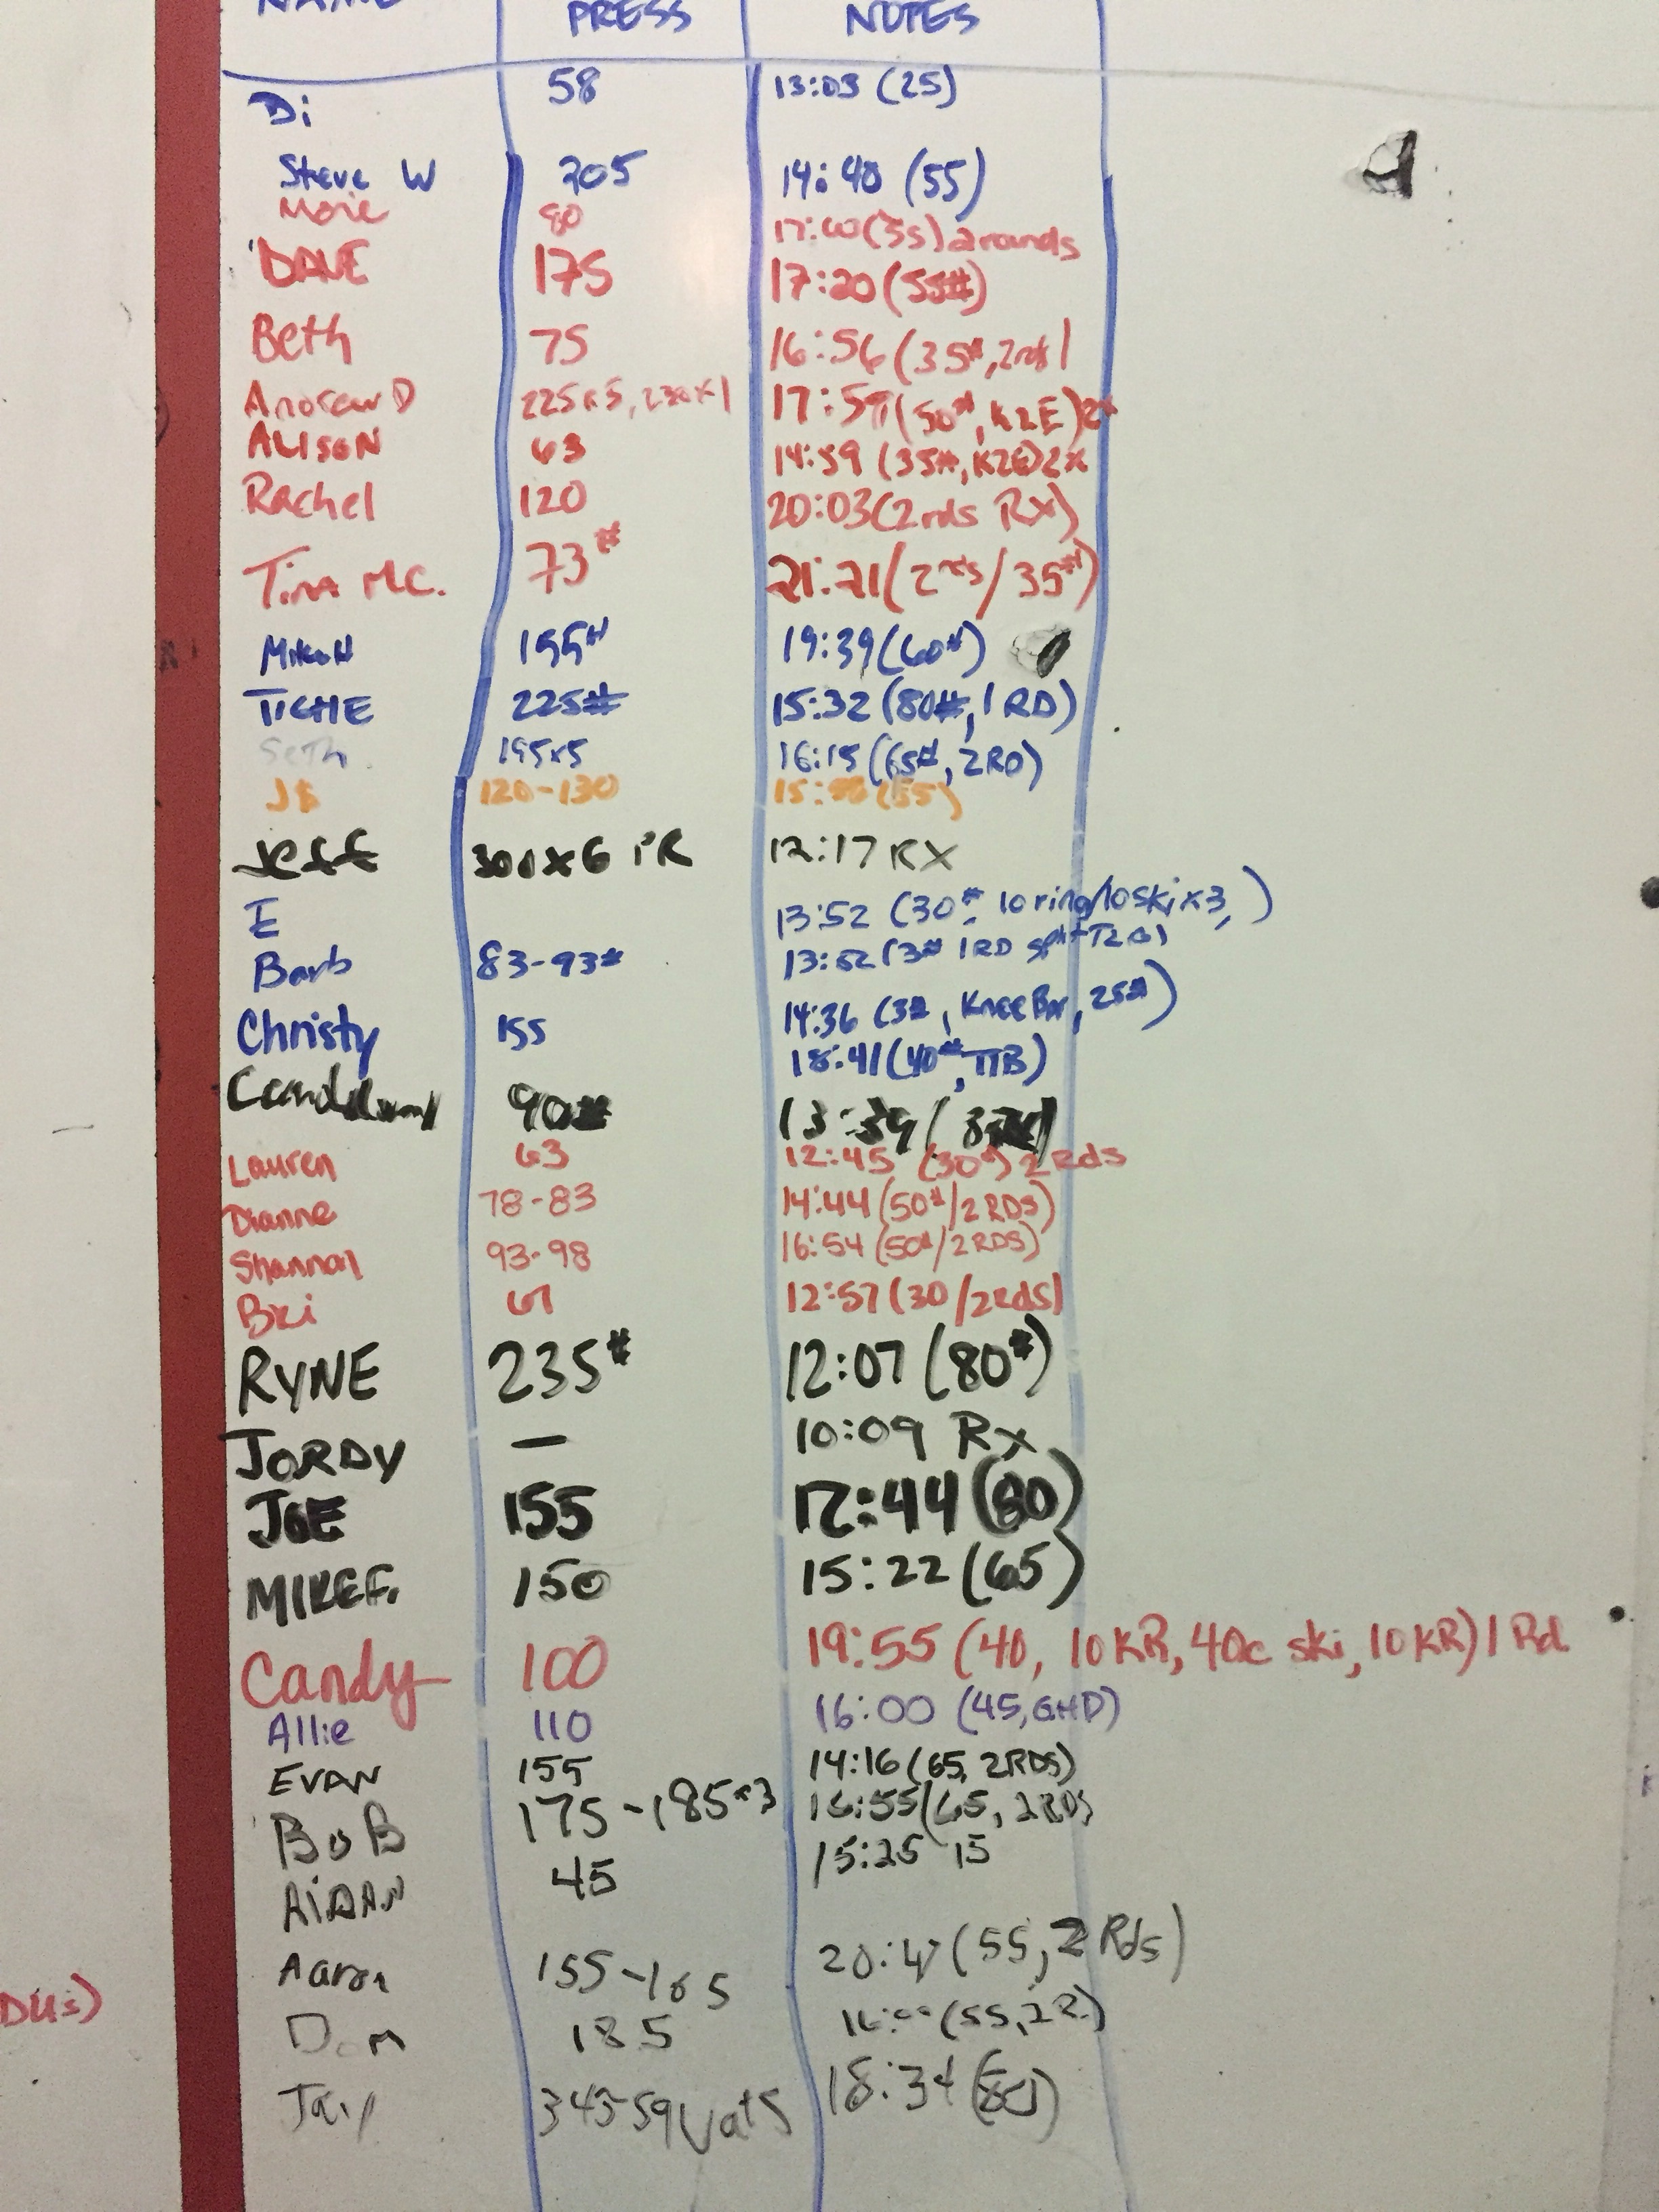 NAME PRESS NOTES
Di 58 13:03 (25)
Steve W 205 14:40 (55)
80 17:40 (35) 2 rounds
DAVE 175 17:20 (55#)
Beth 75 16:56 (35#, 2rds)
Andrew D 225x5, 230x1 17:59 (50#, K2E) 2x
ALISON 63 14:59 (35#, K2E) 2x
Rachel 120 20:03 (2rds Rx)
Tina Mc. 73# 21:21 (2rds/35#)
Mike H 155# 19:39 (60#)
TICHE 225# 15:32 (80#, 1 RD)
Seth 195x5 16:15 (65#, 2RD)
120-130 (55)
Jeff 300x6 PR 12:17 RX
E 13:52 (30#, 10 ring/10 ski x3,)
Barb 83-93# 13:52 (3# 1RD split T2B)
Christy 155 14:36 (3#, Knee Bar, 25#)
18:41 (40#, TTB)
90# 13:39
Lauren 63 12:45 (30#) 2 Rds
Dianne 78-83 14:44 (50#/2 RDS)
Shannon 93-98 16:54 (50#/2 RDS)
Bri 67 12:57 (30/2Rds)
RYNE 235# 12:07 (80#)
JORDY — 10:09 Rx
JOE 155 12:44 (80)
MIKE F. 150 15:22 (65)
Candy 100 19:55 (40, 10 KR, 40c ski, 10 KR) 1 Rd
Allie 110 16:00 (45, GHD)
EVAN 155 14:16 (65, 2RDS)
BoB 175-185x3 16:55 (65, 2RDS
AiDAN 45 15:25 15
Aaron 155-165 (55, 2 Rds)
DUs)
Dom 185 (55, 2R)
18:34 (80)